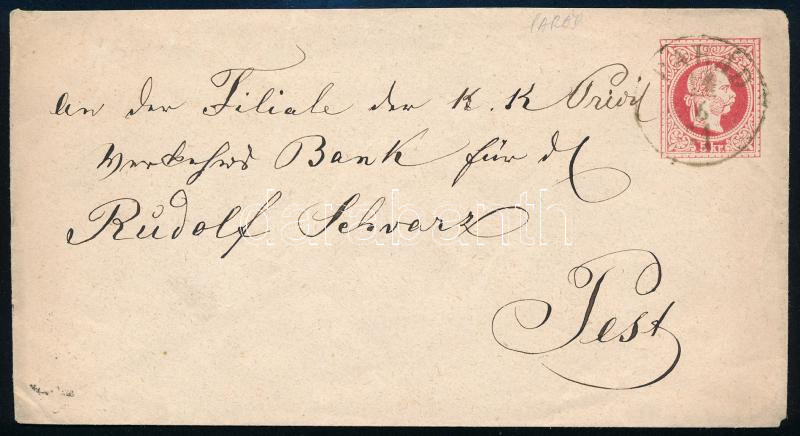 PARÁD
an der Filiale der K. K Privil
Verkehrs Bank für d
Rudolf Schvarz
Pest
5 KR.
darabanth